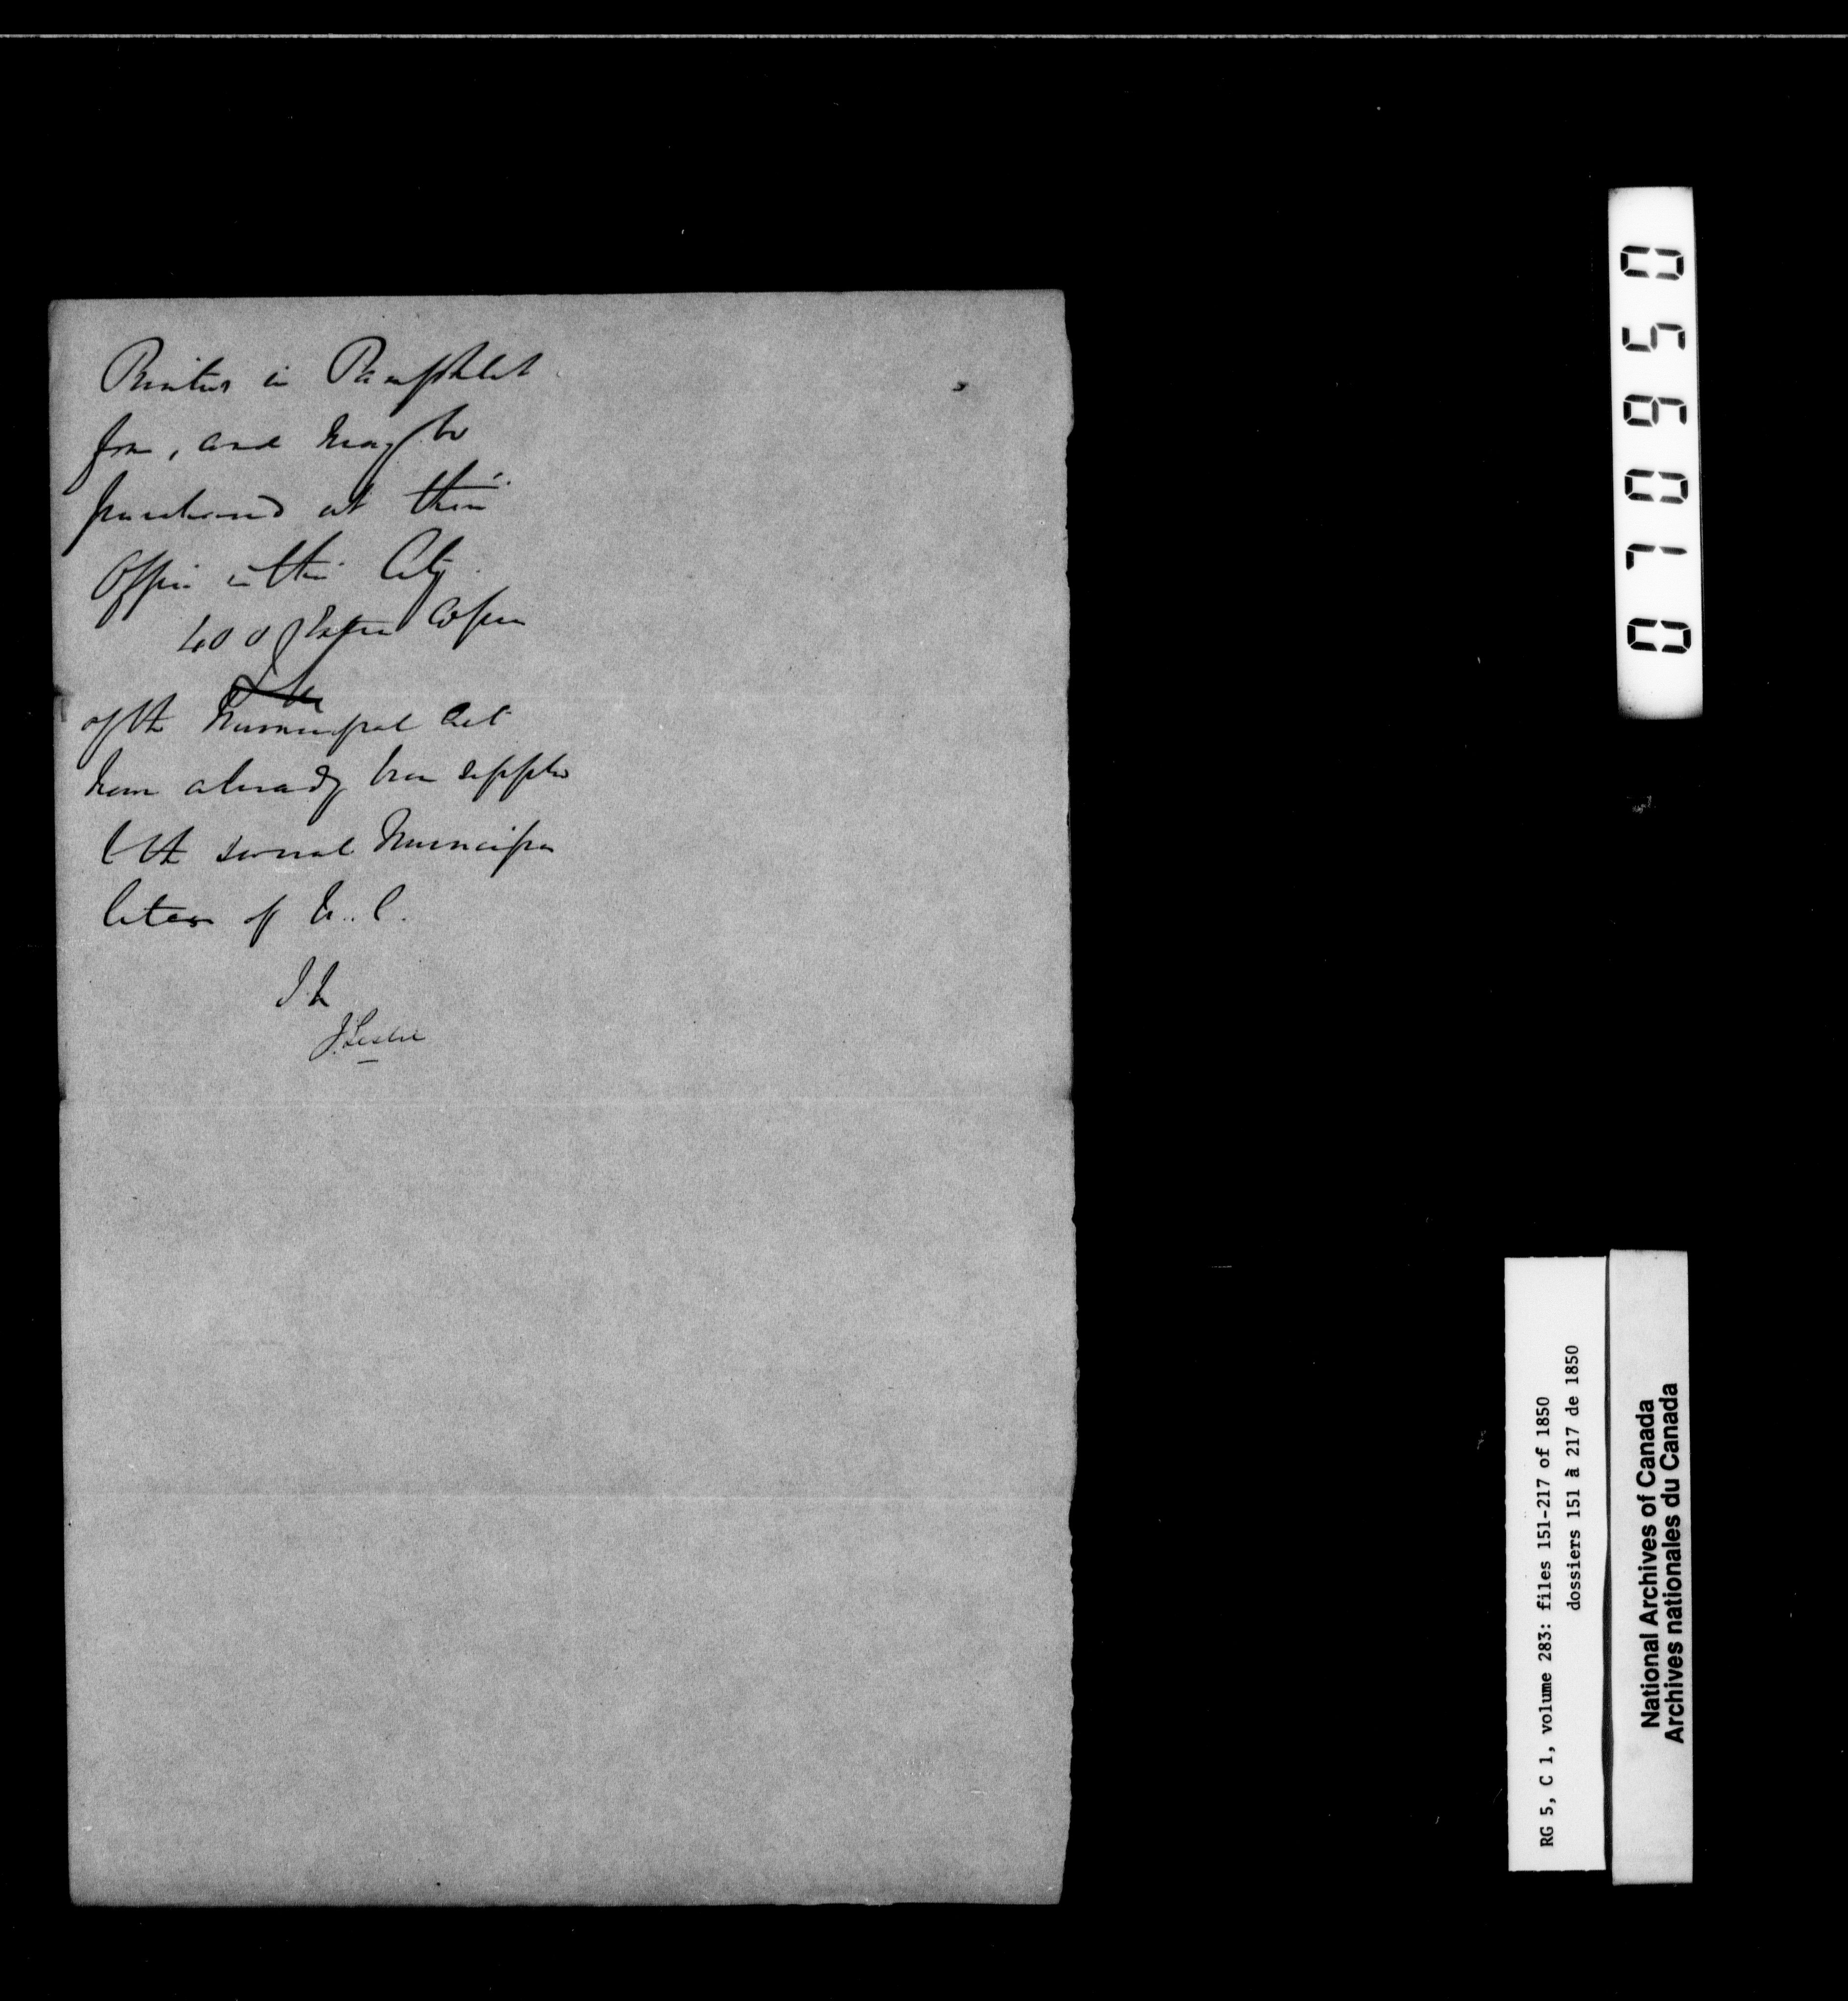 Printers in Pamphlet
form, and may be
purchased at their
Office in this City.
400 Extra Copies
of the Municipal Act
have already been supplied
to the several Municipa
lities of U. C.
J. L
J. Leslie
0
5
6
0
7
0
RG 5, C 1, volume 283: files 151-217 of 1850
dossiers 151 à 217 de 1850
National Archives of Canada
Archives nationales du Canada